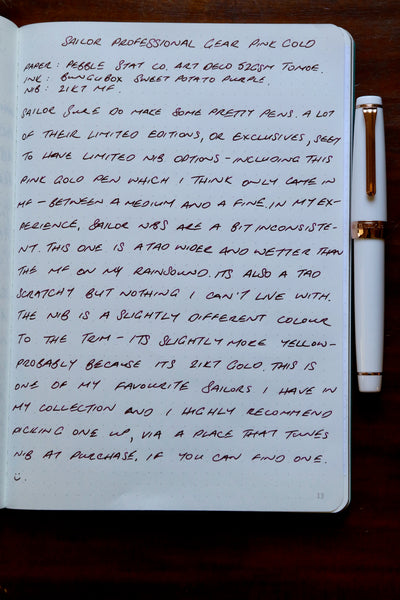 SAILOR PROFESSIONAL GEAR PINK GOLD
PAPER: PEBBLE STAT CO. ART DECO 52GSM TOMOE.
INK: BUNGUBOX SWEET POTATO PURPLE.
NIB: 21KT MF.
SAILOR SURE DO MAKE SOME PRETTY PENS. A LOT
OF THEIR LIMITED EDITIONS, OR EXCLUSIVES, SEEM
TO HAVE LIMITED NIB OPTIONS - INCLUDING THIS
PINK GOLD PEN WHICH I THINK ONLY CAME IN
MF - BETWEEN A MEDIUM AND A FINE. IN MY EX-
PERIENCE, SAILOR NIBS ARE A BIT INCONSISTE-
NT. THIS ONE IS A TAD WIDER AND WETTER THAN
THE MF ON MY RAINSOUND. ITS ALSO A TAD
SCRATCHY BUT NOTHING I CAN'T LIVE WITH.
THE NIB IS A SLIGHTLY DIFFERENT COLOUR
TO THE TRIM - ITS SLIGHTLY MORE YELLOW -
PROBABLY BECAUSE ITS 21KT GOLD. THIS IS
ONE OF MY FAVOURITE SAILORS I HAVE IN
MY COLLECTION AND I HIGHLY RECOMMEND
PICKING ONE UP, VIA A PLACE THAT TUNES
NIB AT PURCHASE, IF YOU CAN FIND ONE.
13